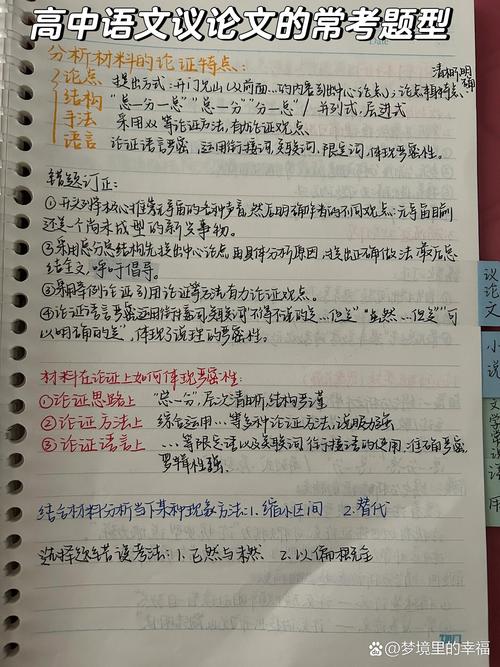 高中语文议论文的常考题型
Date
分析材料的论证特点:
论点 提出方式:开门见山(从前面…的内容引出中心论点);论点本身特点、清晰明确
结构 "总—分—总" "总—分" "分—总" / 并列式,层进式
手法 采用以…等论证方法,有力论证观点
语言 论证语言严密,运用衔接词,关联词,限定词,体现严密性。
错题订正:
①开头列举
然后明确作者的不同观点:元宇宙目前
还是一个尚未成型的新兴事物。
②采用总分总结构先提出中心论点再具体分析原因,提出正确做法 最后总
结全文,呼吁倡导。
③采用举例论证 引用论证等方法有力论证观点。
④论证语言严密运用衔接词关联词"不得不说的是…但是" "虽然…但是" "可
以明确的是",体现了说理的严密性。
材料在论证上如何体现严密性:
①论证思路上 "总—分",层次清晰,结构严谨
②论证方法上 综合运用…等多种论证方法,说服力强
③论证语言上 …等限定语以及关联词 衔接语的使用,准确严密
逻辑性强.
结合材料分析当下某种现象方法:1.缩小区间 2.替代
选择题错误考法:1.已然与未然 2.以偏概全
议论文
小说
用
百度 @梦境里的幸福